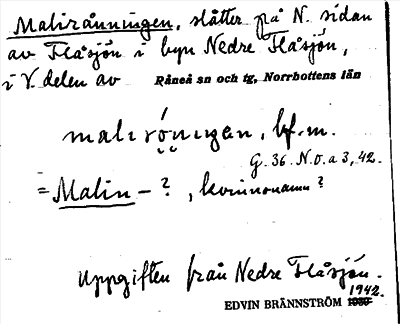 Malirånningen, slåtter på N. sidan
av Flåsjön i byn Nedre Flåsjön,
i V. delen av Råneå sn och tg, Norrbottens län
malıró̤nıgen, bf. m.
G. 36. N. o. a 3, 42.
= Malin – ? , kvinnonamn ?
Uppgiften från Nedre Flåsjön.
1942.
EDVIN BRÄNNSTRÖM 1939